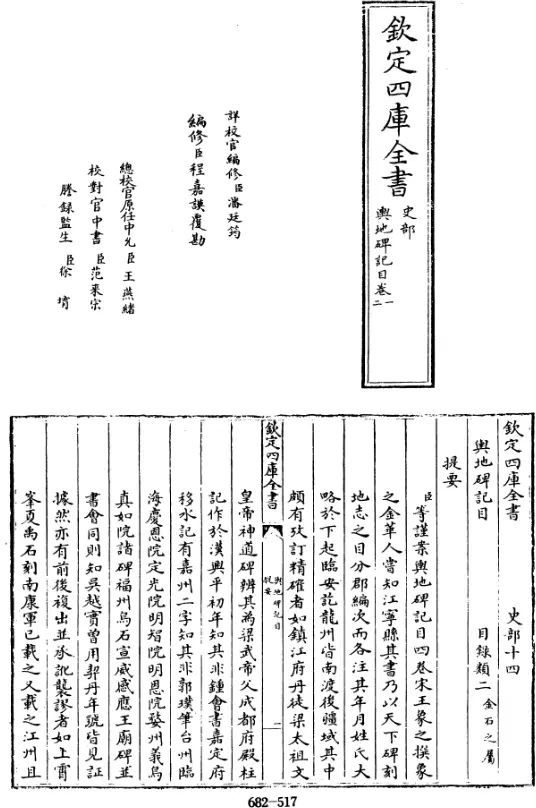 欽定四庫全書
史部
輿地碑記目卷一
二
詳校官編修臣潘廷筠
編修臣程嘉謨覆勘
總校官原任中允臣王燕緒
校對官中書臣范來宗
謄錄監生臣徐堉
欽定四庫全書 史部十四
輿地碑記目 目錄類二金石之屬
提要
臣等謹案輿地碑記目四卷宋王象之撰象
之金華人嘗知江寧縣其書乃以天下碑刻
地志之目分郡編次而各注其年月姓氏大
略於下起臨安訖龍州皆南渡後疆域其中
頗有攷訂精確者如鎮江府丹徒梁太祖文
欽定四庫全書
輿地碑記目
提要
一
皇帝神道碑辨其為梁武帝父成都府殿柱
記作於漢興平初年知其非鍾會書嘉定府
移水記有嘉州二字知其非郭璞筆台州臨
海慶恩院定光院明智院明恩院婺州義烏
真如院諸碑福州烏石宣威感應王廟碑並
書會同則知吳越實曾用契丹年號皆見証
據然亦有前後複出並承訛襲謬者如上霄
峯夏禹石刻南康軍已載之又載之江州且
682-517